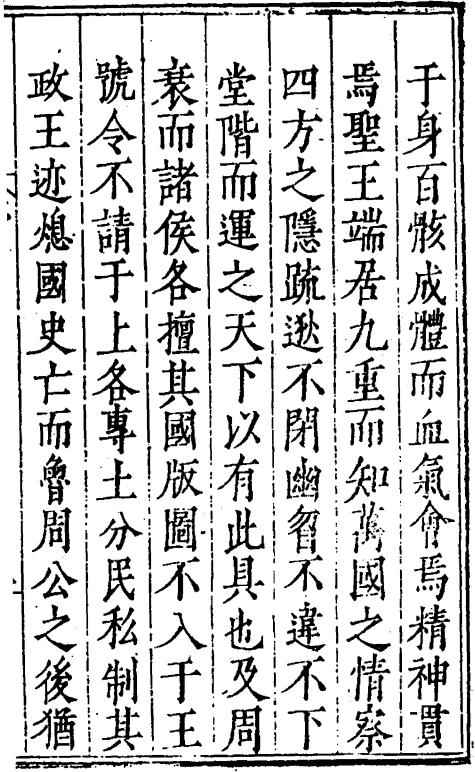 于身百骸成體而血氣會焉精神貫
焉聖王端居九重而知萬國之情察
四方之隱疏逖不閉幽曶不違不下
堂階而運之天下以有此具也及周
衰而諸侯各擅其國版圖不入于王
號令不請于上各專土分民私制其
政王迹熄國史亡而魯周公之後猶